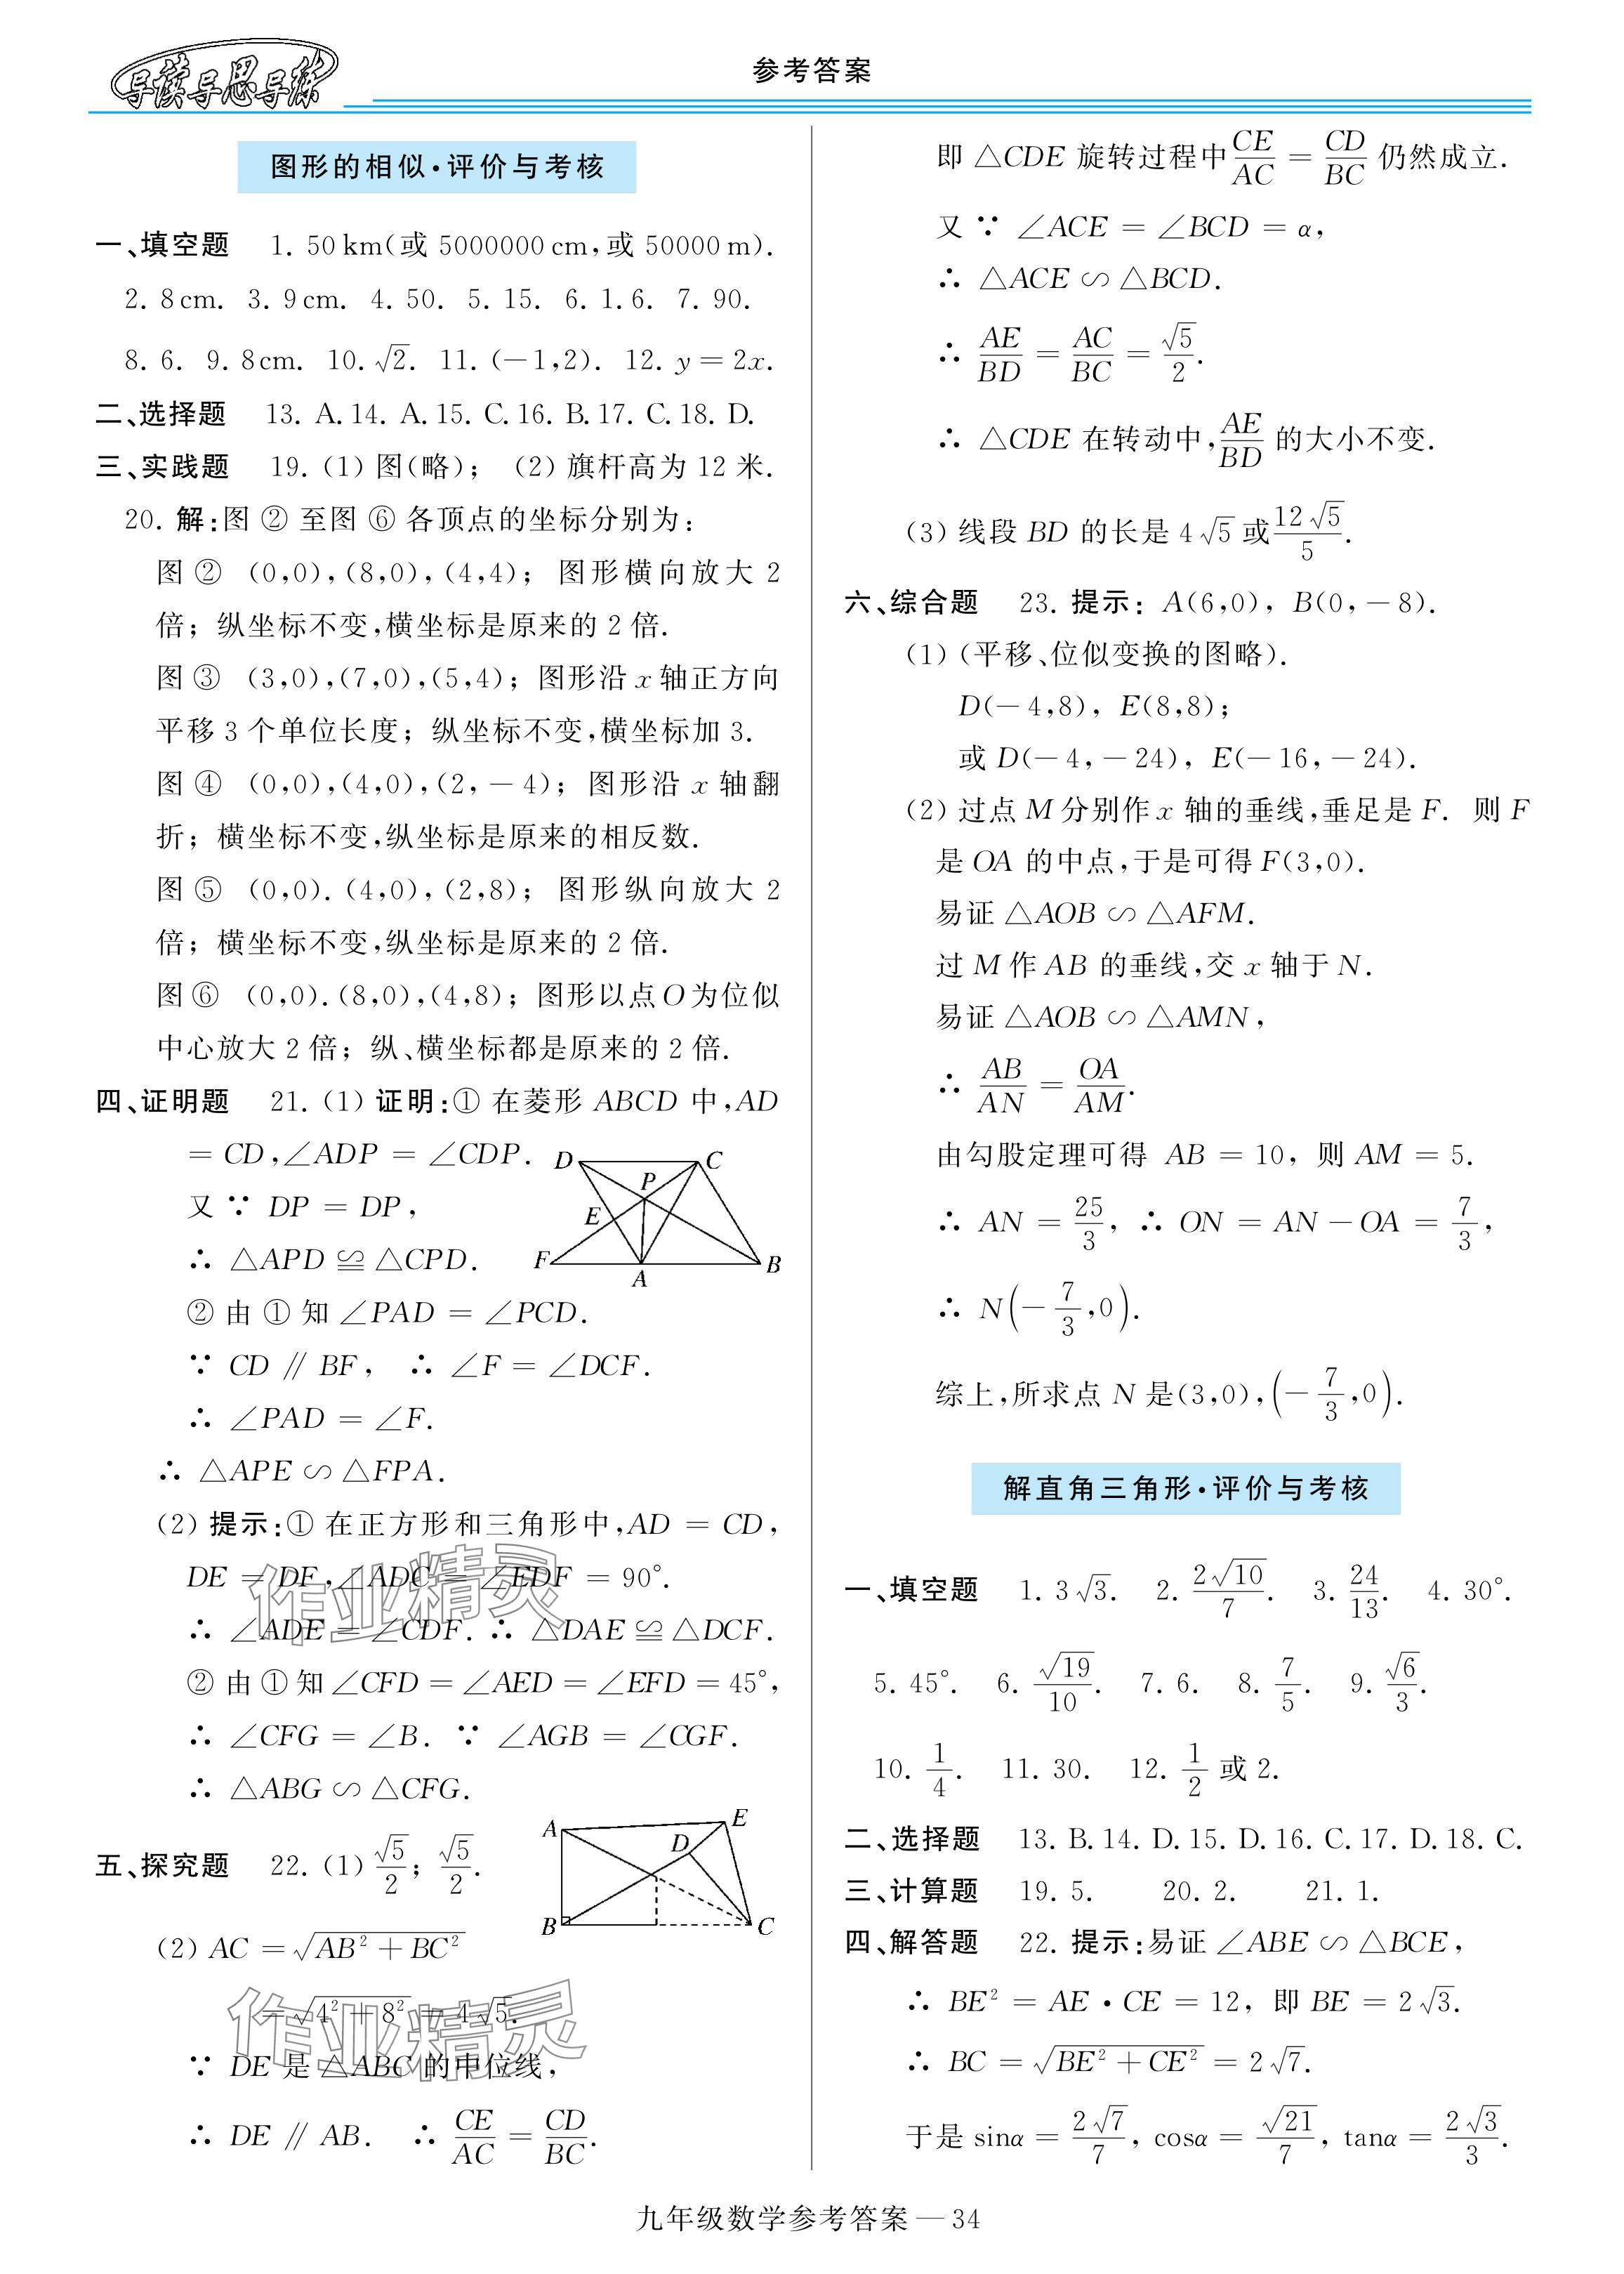 导读导思导练
参考答案
图形的相似·评价与考核
一、填空题 1. 50 km(或 5000000 cm,或 50000 m).
2. 8 cm. 3. 9 cm. 4. 50. 5. 15. 6. 1.6. 7. 90.
8. 6. 9. 8 cm. 10. √2. 11. (−1,2). 12. y = 2x.
二、选择题 13. A. 14. A. 15. C. 16. B. 17. C. 18. D.
三、实践题 19. (1) 图(略); (2) 旗杆高为 12 米.
20. 解:图 ② 至图 ⑥ 各顶点的坐标分别为:
图 ② (0,0),(8,0),(4,4); 图形横向放大 2
倍; 纵坐标不变,横坐标是原来的 2 倍.
图 ③ (3,0),(7,0),(5,4); 图形沿 x 轴正方向
平移 3 个单位长度; 纵坐标不变,横坐标加 3.
图 ④ (0,0),(4,0),(2,−4); 图形沿 x 轴翻
折; 横坐标不变,纵坐标是原来的相反数.
图 ⑤ (0,0). (4,0),(2,8); 图形纵向放大 2
倍; 横坐标不变,纵坐标是原来的 2 倍.
图 ⑥ (0,0). (8,0),(4,8); 图形以点 O 为位似
中心放大 2 倍; 纵、横坐标都是原来的 2 倍.
四、证明题 21. (1) 证明:① 在菱形 ABCD 中,AD
= CD,∠ADP = ∠CDP.
又 ∵ DP = DP,
∴ △APD ≌ △CPD.
② 由 ① 知 ∠PAD = ∠PCD.
∵ CD ∥ BF, ∴ ∠F = ∠DCF.
∴ ∠PAD = ∠F.
∴ △APE ∽ △FPA.
D C P E F A B
(2) 提示:① 在正方形和三角形中,AD = CD,
DE = DF,∠ADC = ∠EDF = 90°.
∴ ∠ADE = ∠CDF. ∴ △DAE ≌ △DCF.
② 由 ① 知 ∠CFD = ∠AED = ∠EFD = 45°,
∴ ∠CFG = ∠B. ∵ ∠AGB = ∠CGF.
∴ △ABG ∽ △CFG.
作业精灵
五、探究题 22. (1) √5/2; √5/2.
A E D B C
(2) AC = √(AB² + BC²)
= √(4² + 8²) = 4√5.
∵ DE 是 △ABC 的中位线,
∴ DE ∥ AB. ∴ CE/AC = CD/BC.
作业精灵
即 △CDE 旋转过程中 CE/AC = CD/BC 仍然成立.
又 ∵ ∠ACE = ∠BCD = α,
∴ △ACE ∽ △BCD.
∴ AE/BD = AC/BC = √5/2.
∴ △CDE 在转动中,AE/BD 的大小不变.
(3) 线段 BD 的长是 4√5 或 12√5/5.
六、综合题 23. 提示: A(6,0), B(0,−8).
(1) (平移、位似变换的图略).
D(−4,8), E(8,8);
或 D(−4,−24), E(−16,−24).
(2) 过点 M 分别作 x 轴的垂线,垂足是 F. 则 F
是 OA 的中点,于是可得 F(3,0).
易证 △AOB ∽ △AFM.
过 M 作 AB 的垂线,交 x 轴于 N.
易证 △AOB ∽ △AMN,
∴ AB/AN = OA/AM.
由勾股定理可得 AB = 10, 则 AM = 5.
∴ AN = 25/3, ∴ ON = AN − OA = 7/3,
∴ N(−7/3,0).
综上,所求点 N 是(3,0),(−7/3,0).
解直角三角形·评价与考核
一、填空题 1. 3√3. 2. 2√10/7. 3. 24/13. 4. 30°.
5. 45°. 6. √19/10. 7. 6. 8. 7/5. 9. √6/3.
10. 1/4. 11. 30. 12. 1/2 或 2.
二、选择题 13. B. 14. D. 15. D. 16. C. 17. D. 18. C.
三、计算题 19. 5. 20. 2. 21. 1.
四、解答题 22. 提示:易证 ∠ABE ∽ △BCE,
∴ BE² = AE · CE = 12, 即 BE = 2√3.
∴ BC = √(BE² + CE²) = 2√7.
于是 sinα = 2√7/7, cosα = √21/7, tanα = 2√3/3.
九年级数学参考答案 — 34